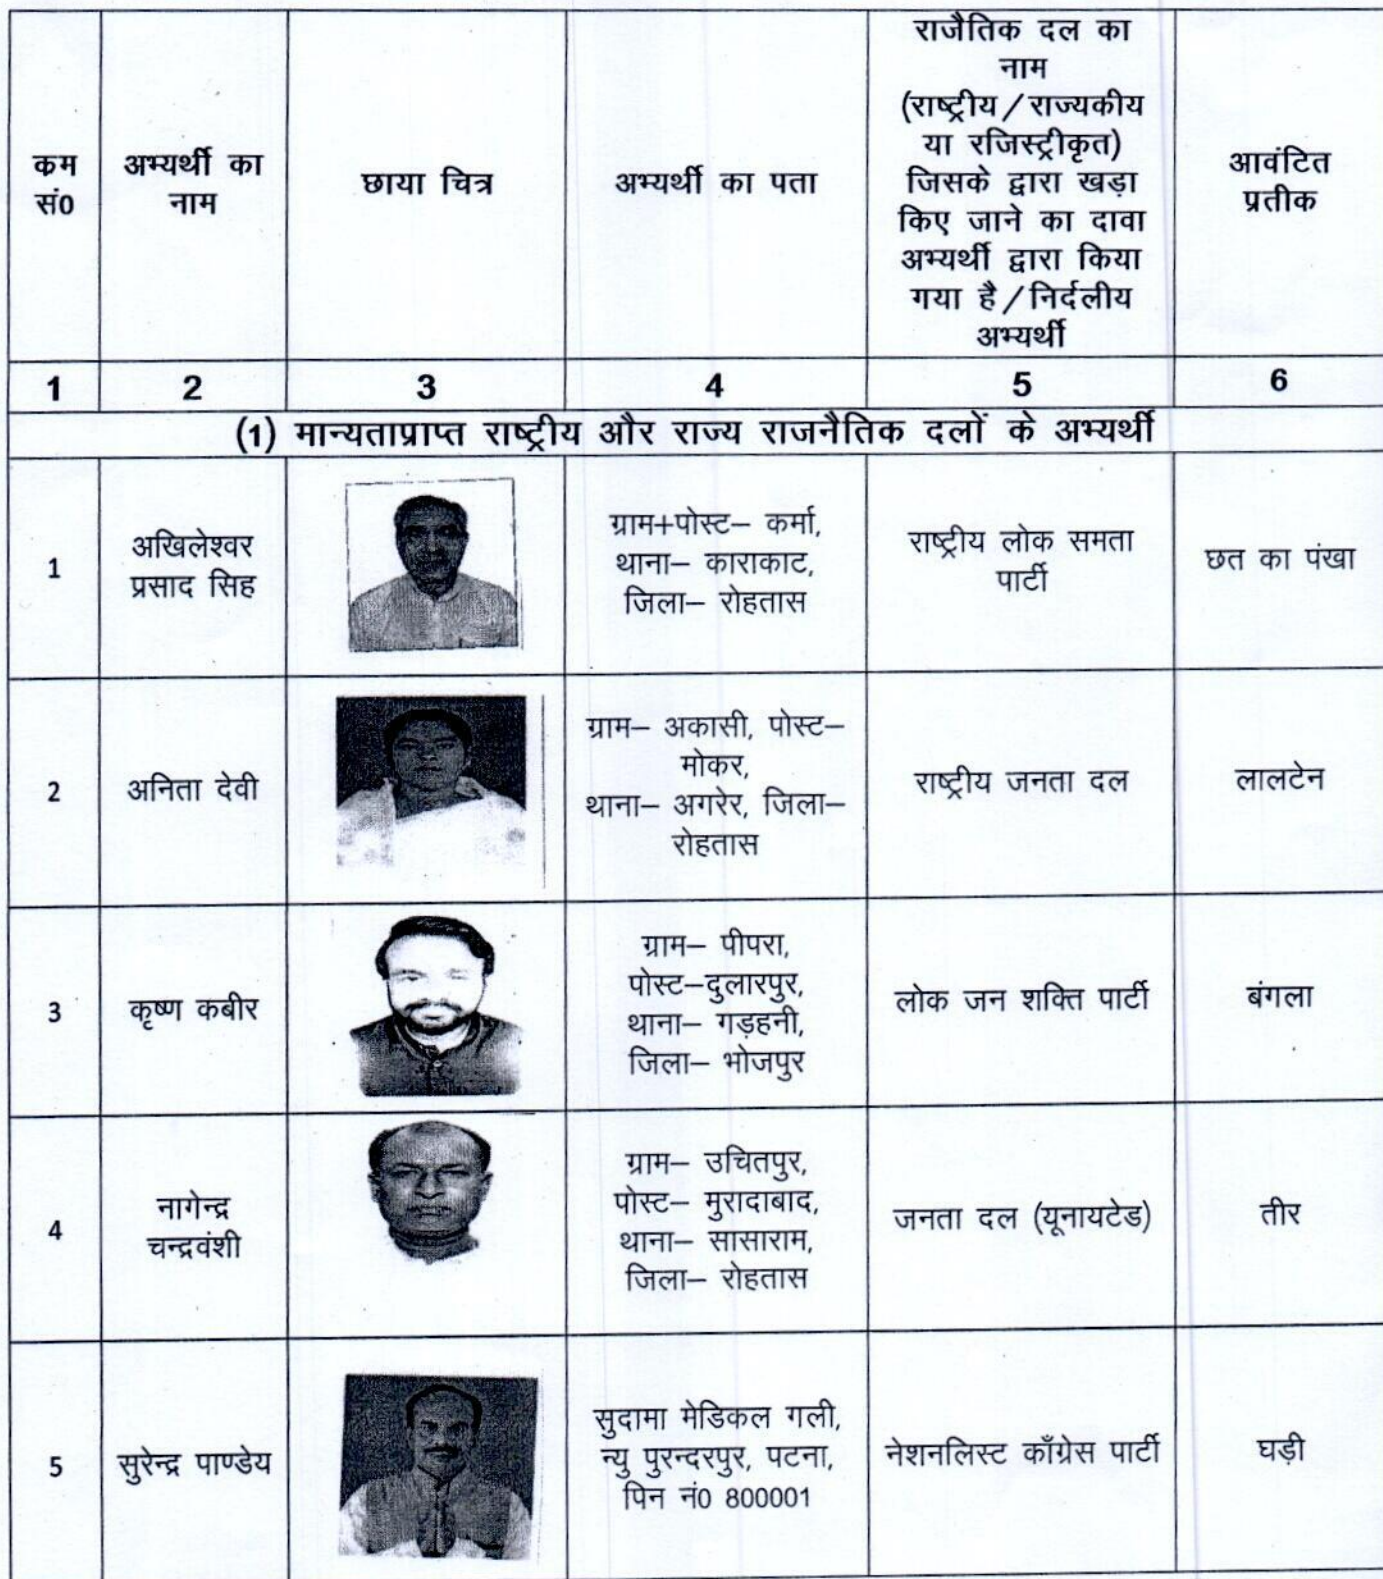 कम
सं0
अभ्यर्थी का
नाम
छाया चित्र
अभ्यर्थी का पता
राजैतिक दल का
नाम
(राष्ट्रीय / राज्यकीय
या रजिस्ट्रीकृत)
जिसके द्वारा खड़ा
किए जाने का दावा
अभ्यर्थी द्वारा किया
गया है / निर्दलीय
अभ्यर्थी
आवंटित
प्रतीक
1 2 3 4 5 6
(1) मान्यताप्राप्त राष्ट्रीय और राज्य राजनैतिक दलों के अभ्यर्थी
1
अखिलेश्वर
प्रसाद सिह
ग्राम+पोस्ट– कर्मा,
थाना– काराकाट,
जिला– रोहतास
राष्ट्रीय लोक समता
पार्टी
छत का पंखा
2
अनिता देवी
ग्राम– अकासी, पोस्ट–
मोकर,
थाना– अगरेर, जिला–
रोहतास
राष्ट्रीय जनता दल
लालटेन
3
कृष्ण कबीर
ग्राम– पीपरा,
पोस्ट–दुलारपुर,
थाना– गड़हनी,
जिला– भोजपुर
लोक जन शक्ति पार्टी
बंगला
4
नागेन्द्र
चन्द्रवंशी
ग्राम– उचितपुर,
पोस्ट– मुरादाबाद,
थाना– सासाराम,
जिला– रोहतास
जनता दल (यूनायटेड)
तीर
5
सुरेन्द्र पाण्डेय
सुदामा मेडिकल गली,
न्यु पुरन्दरपुर, पटना,
पिन नं0 800001
नेशनलिस्ट काँग्रेस पार्टी
घड़ी